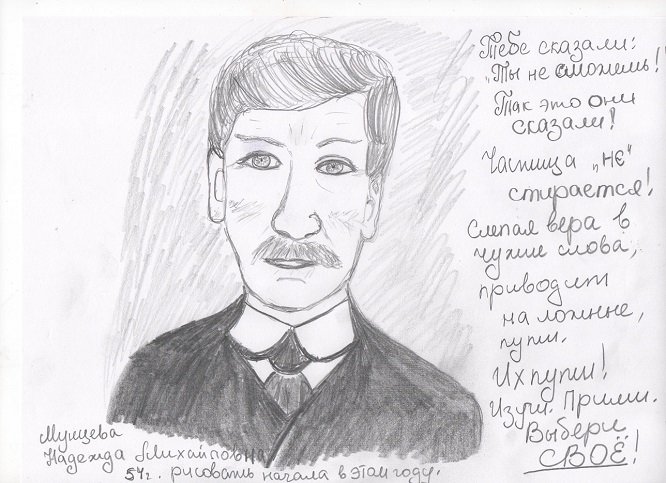 Тебе сказали:
„Ты не сможешь!"
Так это они
сказали!
Частица „не"
стирается!
Слепая вера в
чужие слова,
приводит
на ложные,
пути.
Их пути!
Изучи. Прими.
Выбери
СВОЁ!
Надежда Михайловна
54г. рисовать начала в этом году.